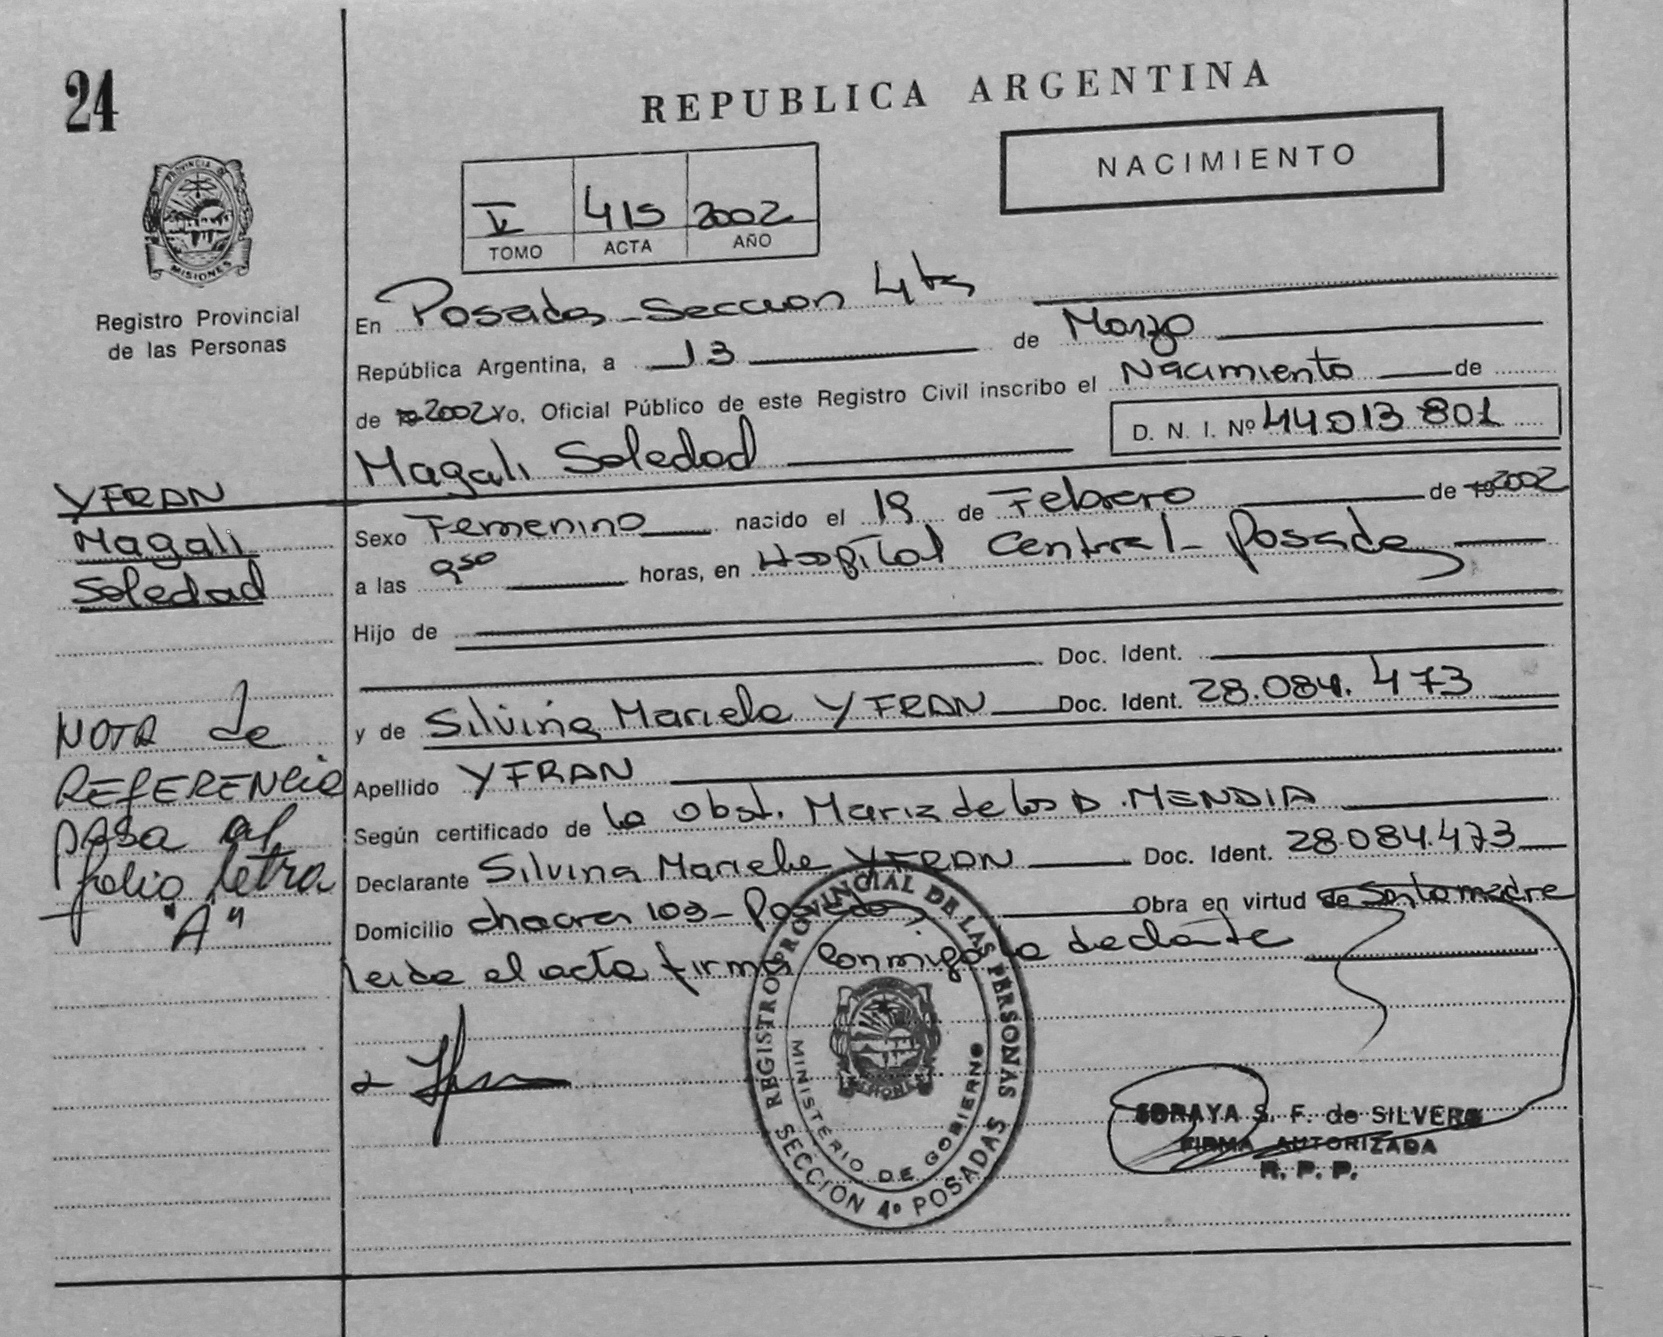 24
REPUBLICA ARGENTINA
NACIMIENTO
PROVINCIA DE
MISIONES
V 415 2002
TOMO ACTA AÑO
Registro Provincial
de las Personas
En Posadas - Seccion 4ta
República Argentina, a 13 de Marzo
de 19 2002 Yo, Oficial Público de este Registro Civil inscribo el Nacimiento de
D. N. I. Nº 44013801
Magali Soledad
YFRAN
Magali
Soledad
Sexo Femenino nacido el 19 de Febrero de 19 2002
a las 9 50 horas, en Hospital Central - Posadas
Hijo de
Doc. Ident.
y de Silvina Mariela YFRAN Doc. Ident. 28.084.473
Apellido YFRAN
Según certificado de la Obst. Maria de los D. MENDIA
Declarante Silvina Mariela YFRAN Doc. Ident. 28.084.473
Domicilio chacra 103 - Posadas Obra en virtud de
leida el acta firma conmigo la
NOTA de
REFERENCIA
pasa al
folio letra
"A"
REGISTRO PROVINCIAL DE LAS PERSONAS
MINISTERIO DE GOBIERNO
SECCIÓN 4º POSADAS
SORAYA S. F. de SILVERO
FIRMA AUTORIZADA
R. P. P.